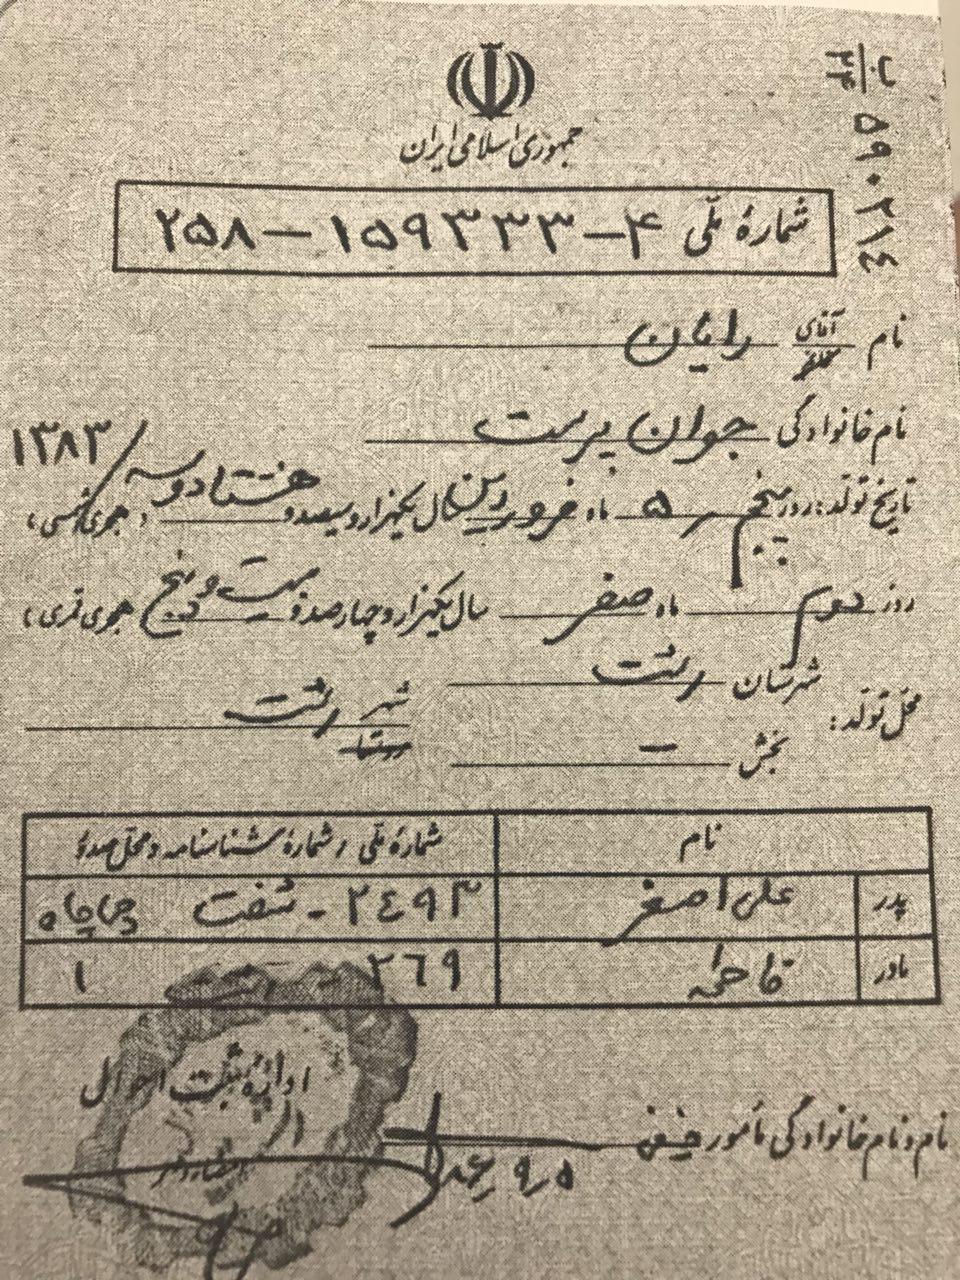 ب/۲۴ ۵۹۰۲۱۴
جمهوری اسلامی ایران
شمارهٔ ملّی ۴-۱۵۹۳۳۳-۲۵۸
نام آقای رایان
نام خانوادگی جوان پرست
تاریخ تولّد: روز پنجم ۵ ماه فروردین سال یکهزار و سیصد و هشتاد و سه /۱۳۸۳ (هجری شمسی)
روز دوم ماه صفر سال یکهزار و چهارصد و بیست و پنج هجری قمری)
محلّ تولّد: شهرستان رشت
شهر رشت
روستا
بخش –
نام
شمارهٔ ملّی / شمارهٔ شناسنامه و محلّ صدور
پدر علی اصغر ۲۴۹۳ - شفت
مادر فاطمه ۲۶۹ ۱
ادارهٔ ثبت احوال
نام و نام خانوادگی مأمور